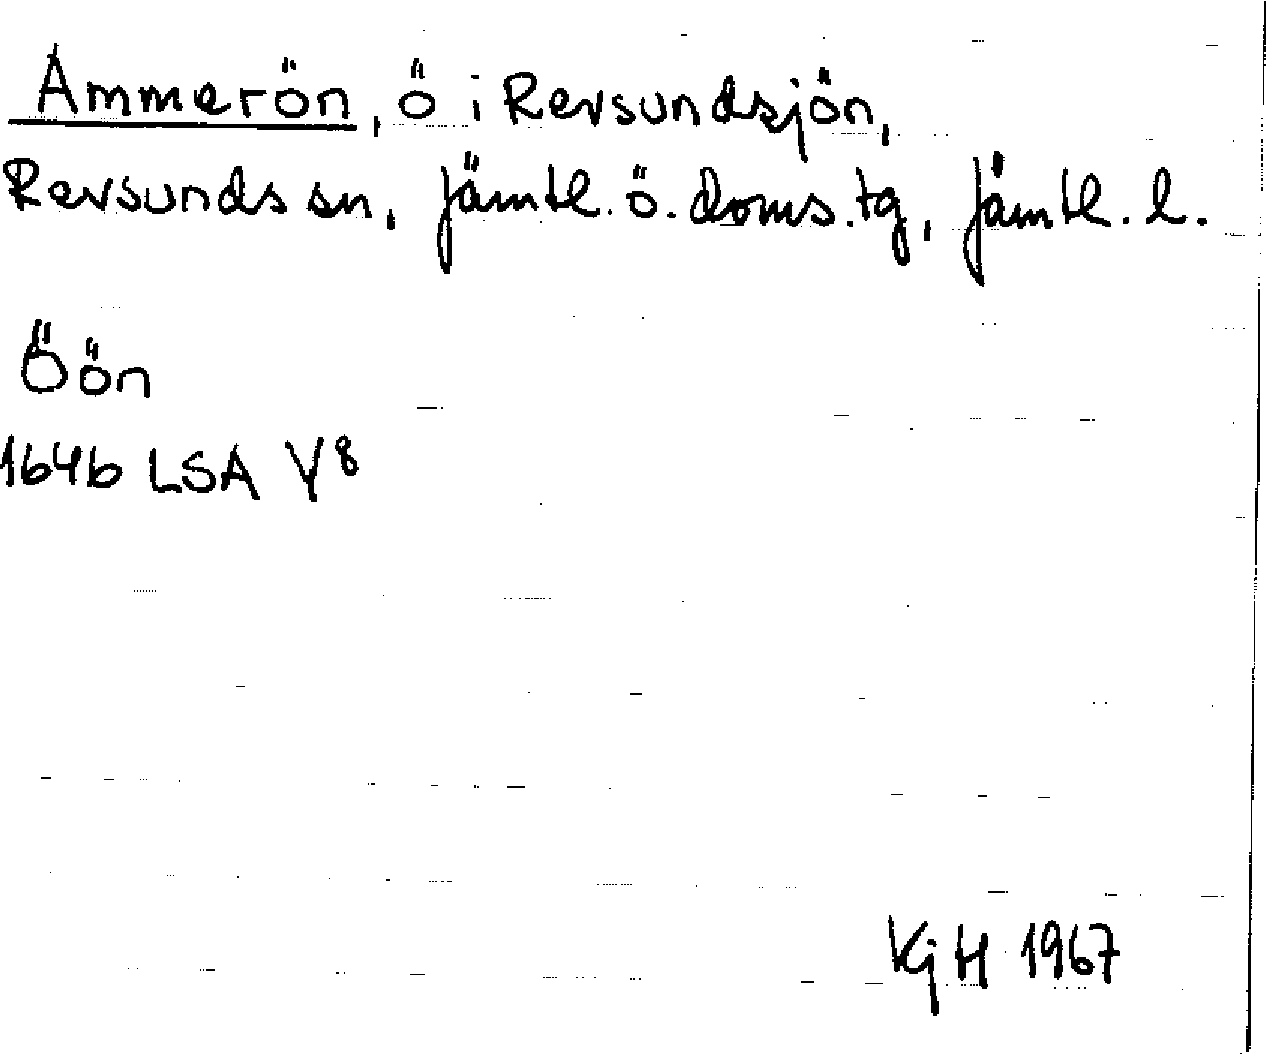 Ammerön, ö i Revsundsjön,
Revsunds sn, Jämtl. ö. doms.tg, Jämtl. l.
Öön
1646 LSA Y8
KGH 1967